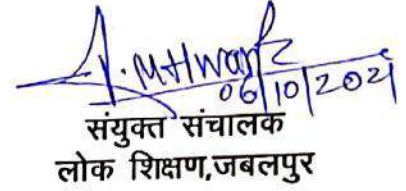 06/10/2021
संयुक्त संचालक
लोक शिक्षण,जबलपुर